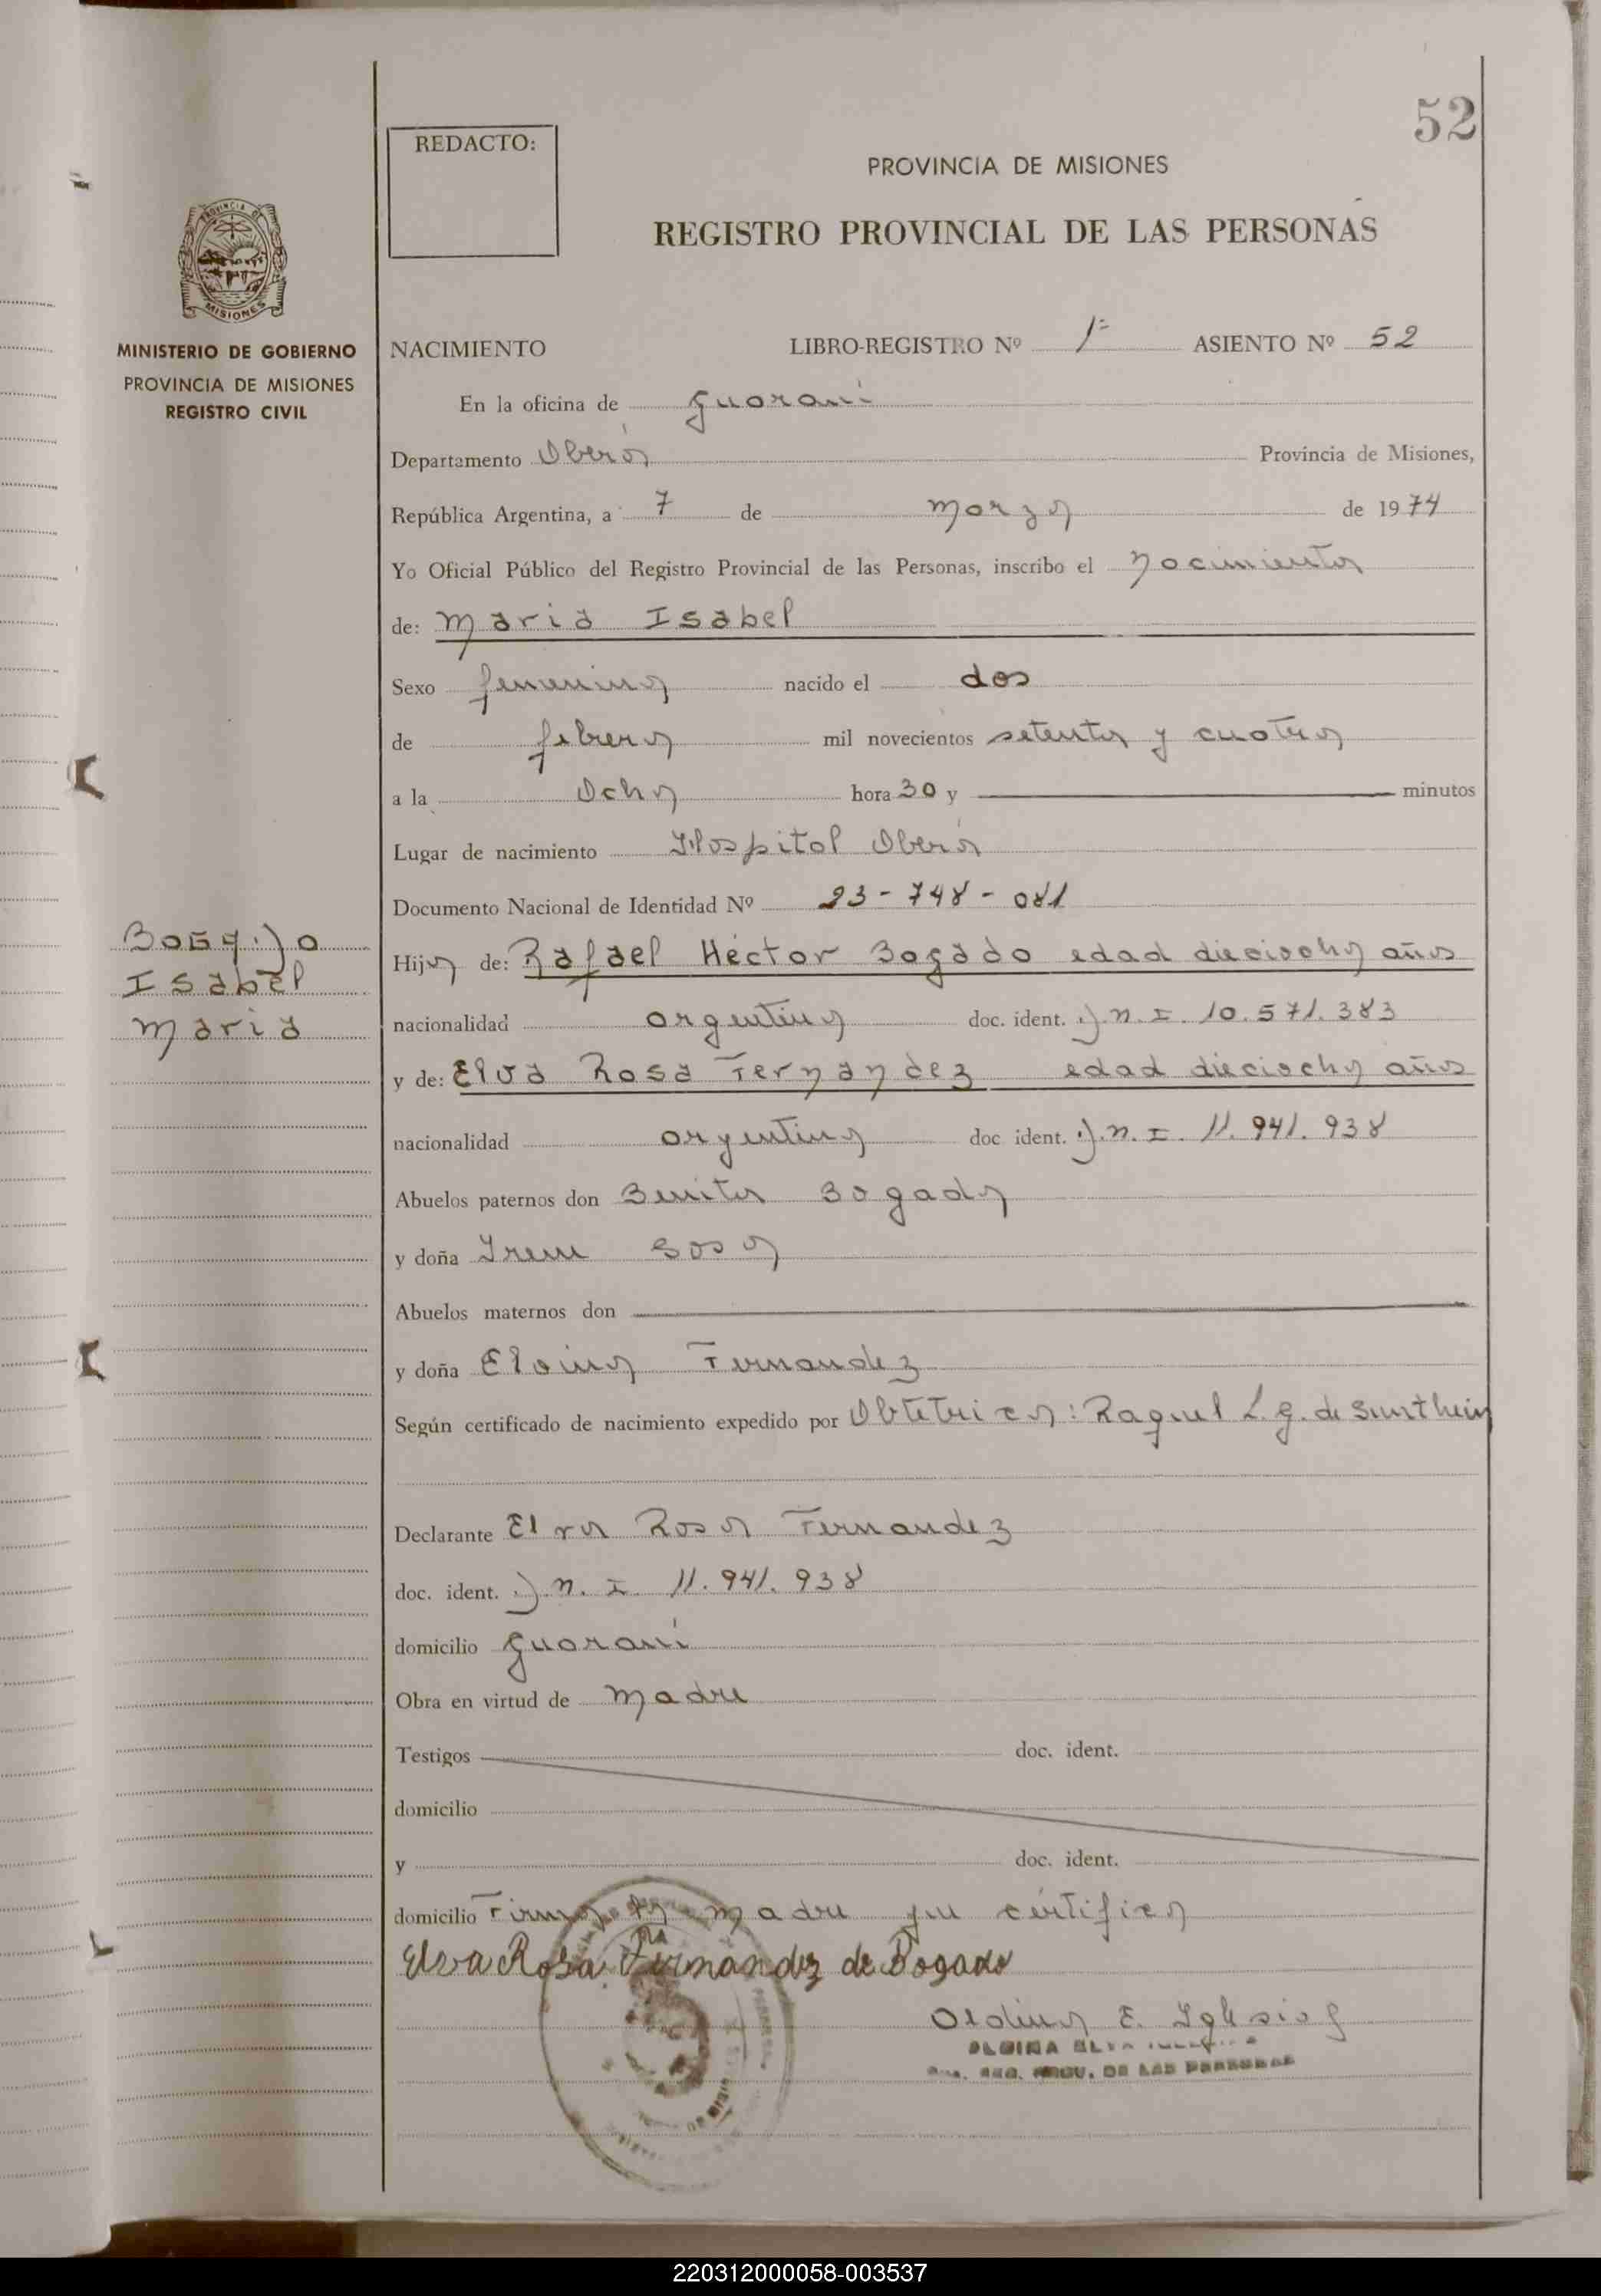 52
REDACTO:
PROVINCIA DE MISIONES
REGISTRO PROVINCIAL DE LAS PERSONAS
PROVINCIA DE
MISIONES
MINISTERIO DE GOBIERNO
PROVINCIA DE MISIONES
REGISTRO CIVIL
NACIMIENTO LIBRO-REGISTRO Nº 1º ASIENTO Nº 52
En la oficina de Guaraní
Departamento Oberá Provincia de Misiones,
República Argentina, a 7 de marzo de 1974
Yo Oficial Público del Registro Provincial de las Personas, inscribo el nacimiento
de: Maria Isabel
Sexo femenino nacido el dos
de febrero mil novecientos setenta y cuatro
a la Ocho hora 30 y minutos
Lugar de nacimiento Hospital Oberá
Documento Nacional de Identidad Nº 23-748-081
Isabel
Maria
Hija de: Rafael Héctor Bogado edad dieciocho años
nacionalidad argentina doc. ident. D.N.I. 10.571.383
y de: Elva Rosa Fernandez edad dieciocho años
nacionalidad argentina doc ident. D.N.I. 11.941.938
Abuelos paternos don Benito Bogado
y doña Irene Sosa
Abuelos maternos don
y doña Eloina Fernandez
Según certificado de nacimiento expedido por Obtetrica: Raquel L. G. de
Declarante Elva Rosa Fernandez
doc. ident. D.N.I. 11.941.938
domicilio Guaraní
Obra en virtud de madre
Testigos doc. ident.
domicilio
y doc. ident.
domicilio Firma la madre que certifica
Elva Rosa Fernandez de Bogado
E. Iglesias
DE LAS PERSONAS
220312000058-003537